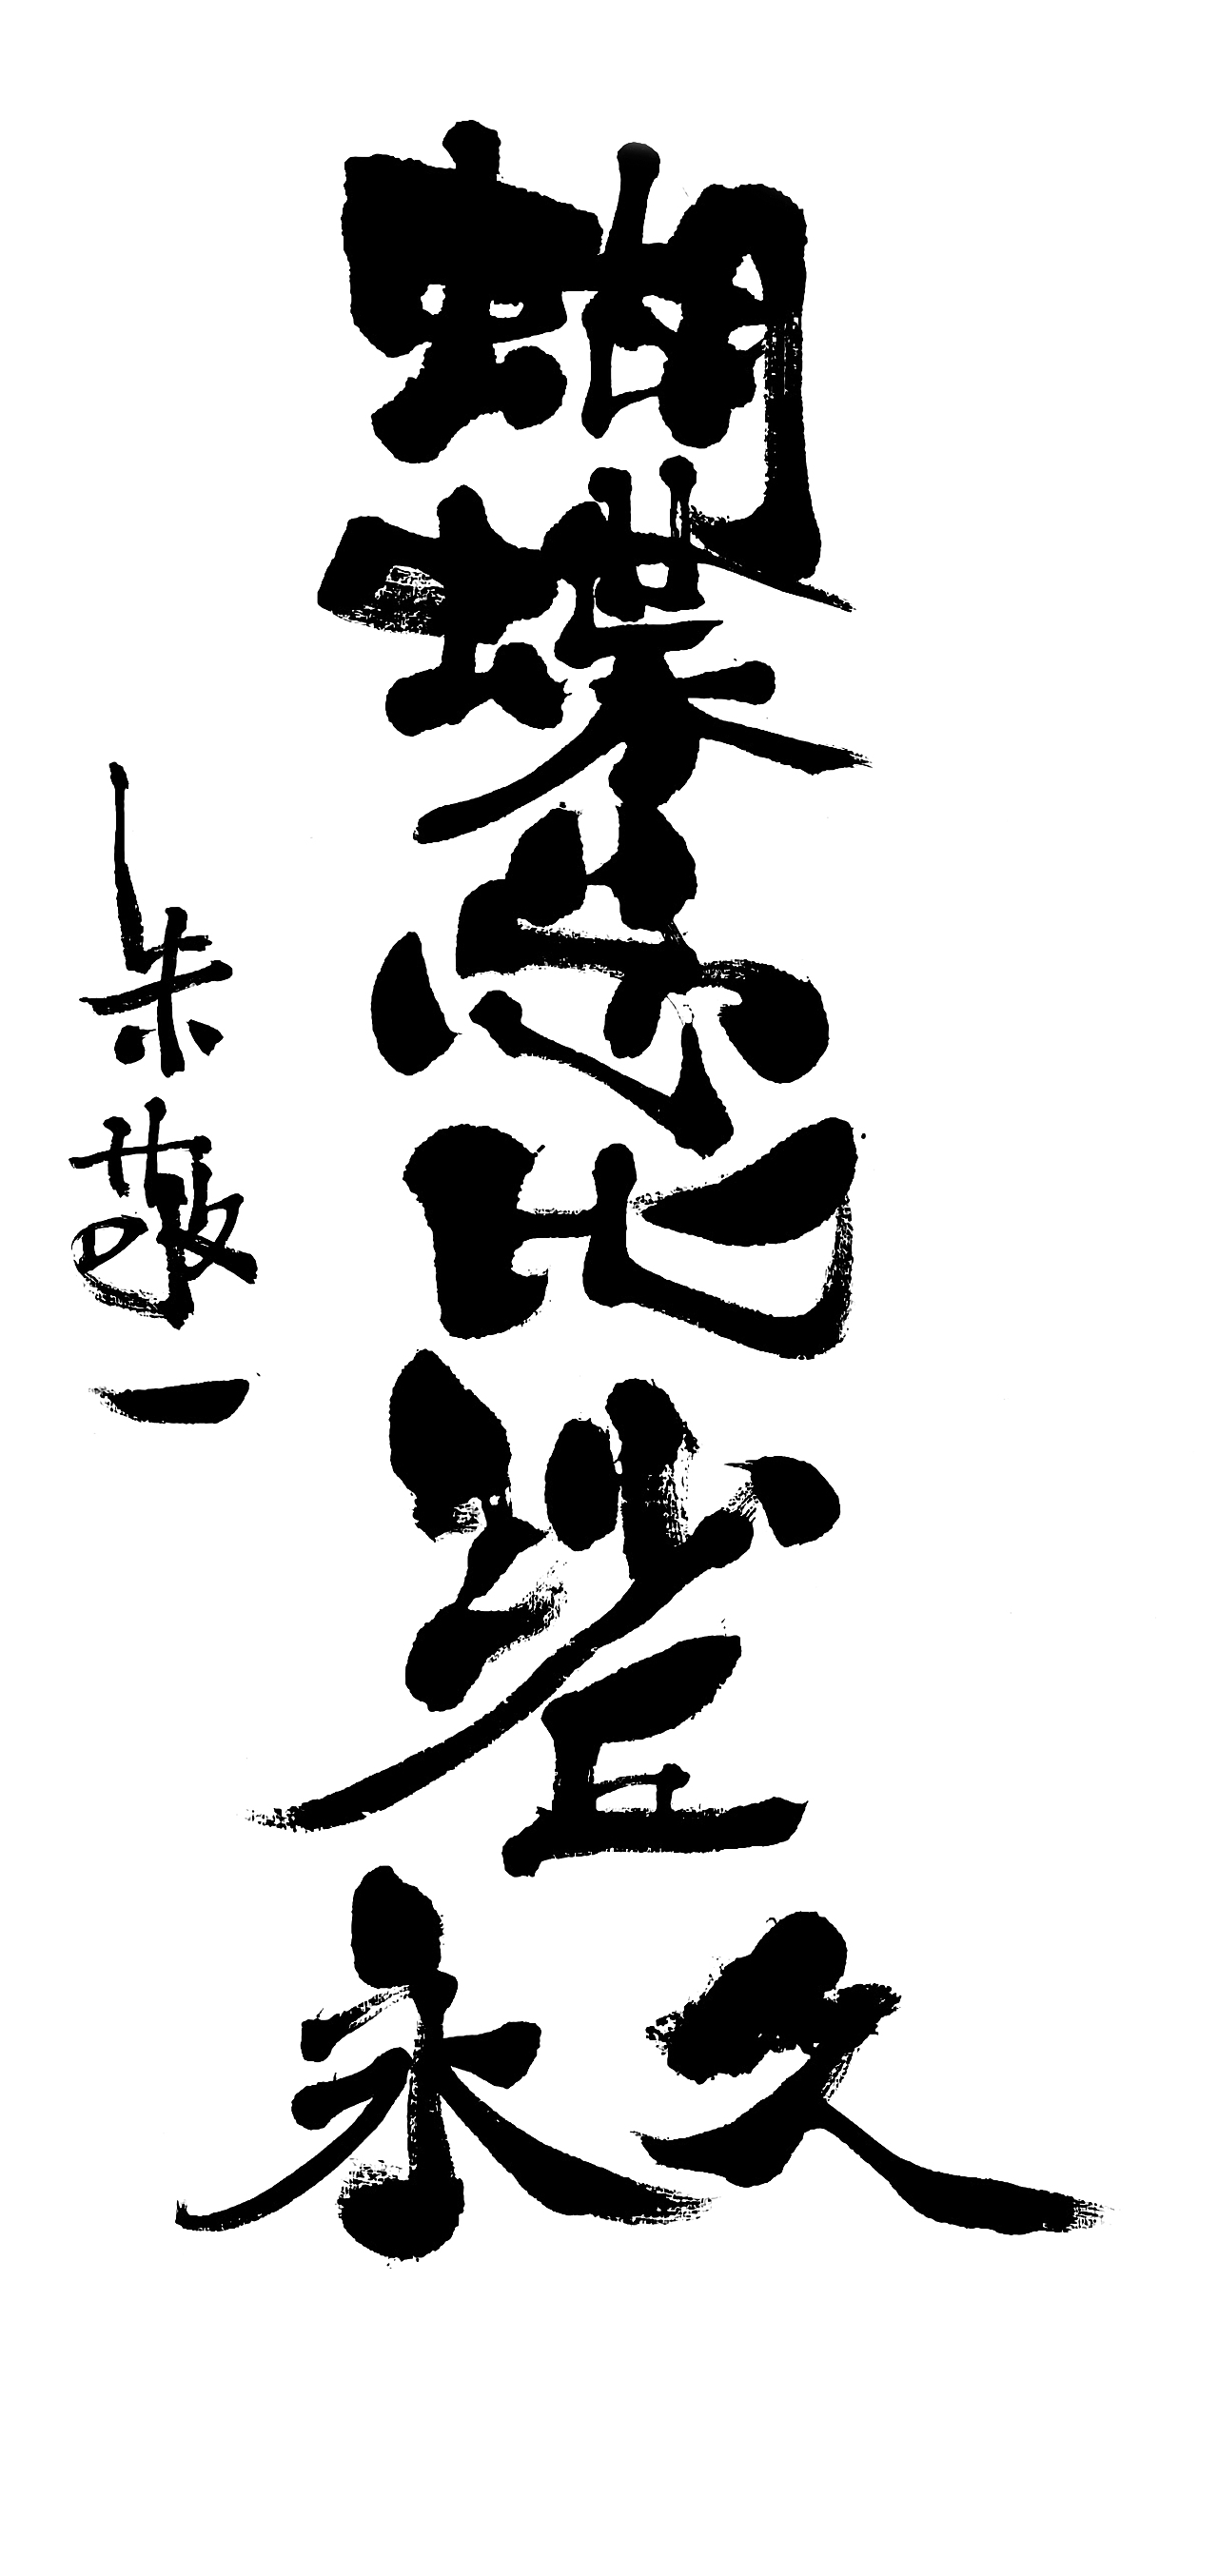 蝴蝶比沙丘永久
朱敬一